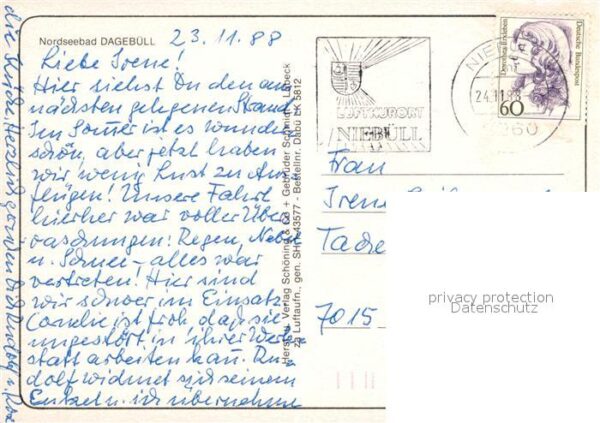 Nordseebad DAGEBÜLL
23.11.88
Liebe Irene!
Hier siehst Du den am
nächsten gelegenen Strand.
Im Sommer ist es wunder
schön, aber jetzt haben
wir wenig Lust zu Aus
flügen! Unsere Fahrt
hierher war voller Über
raschungen! Regen, Nebel
u. Schnee – alles war
vertreten! Hier sind
wir schwer im Einsatz
ist froh daß sie
ungestört in ihrer Werk
statt arbeiten kann. Ru-
dolf widmet sich seinem
Enkel u. ich übernehme
die Küche. Herzlich
Herst. u. Verlag Schöning & Co + Gebrüder Schmidt, Lübeck
23 Luftaufn., gen. SH 43577 - Bestellnr. Dabü LK 5812
LUFTKURORT
NIEBÜLL
NIE
24.11.88
2260
Dorothea Erxleben
Deutsche Bundespost
60
Frau
Irene
7015
privacy protection
Datenschutz